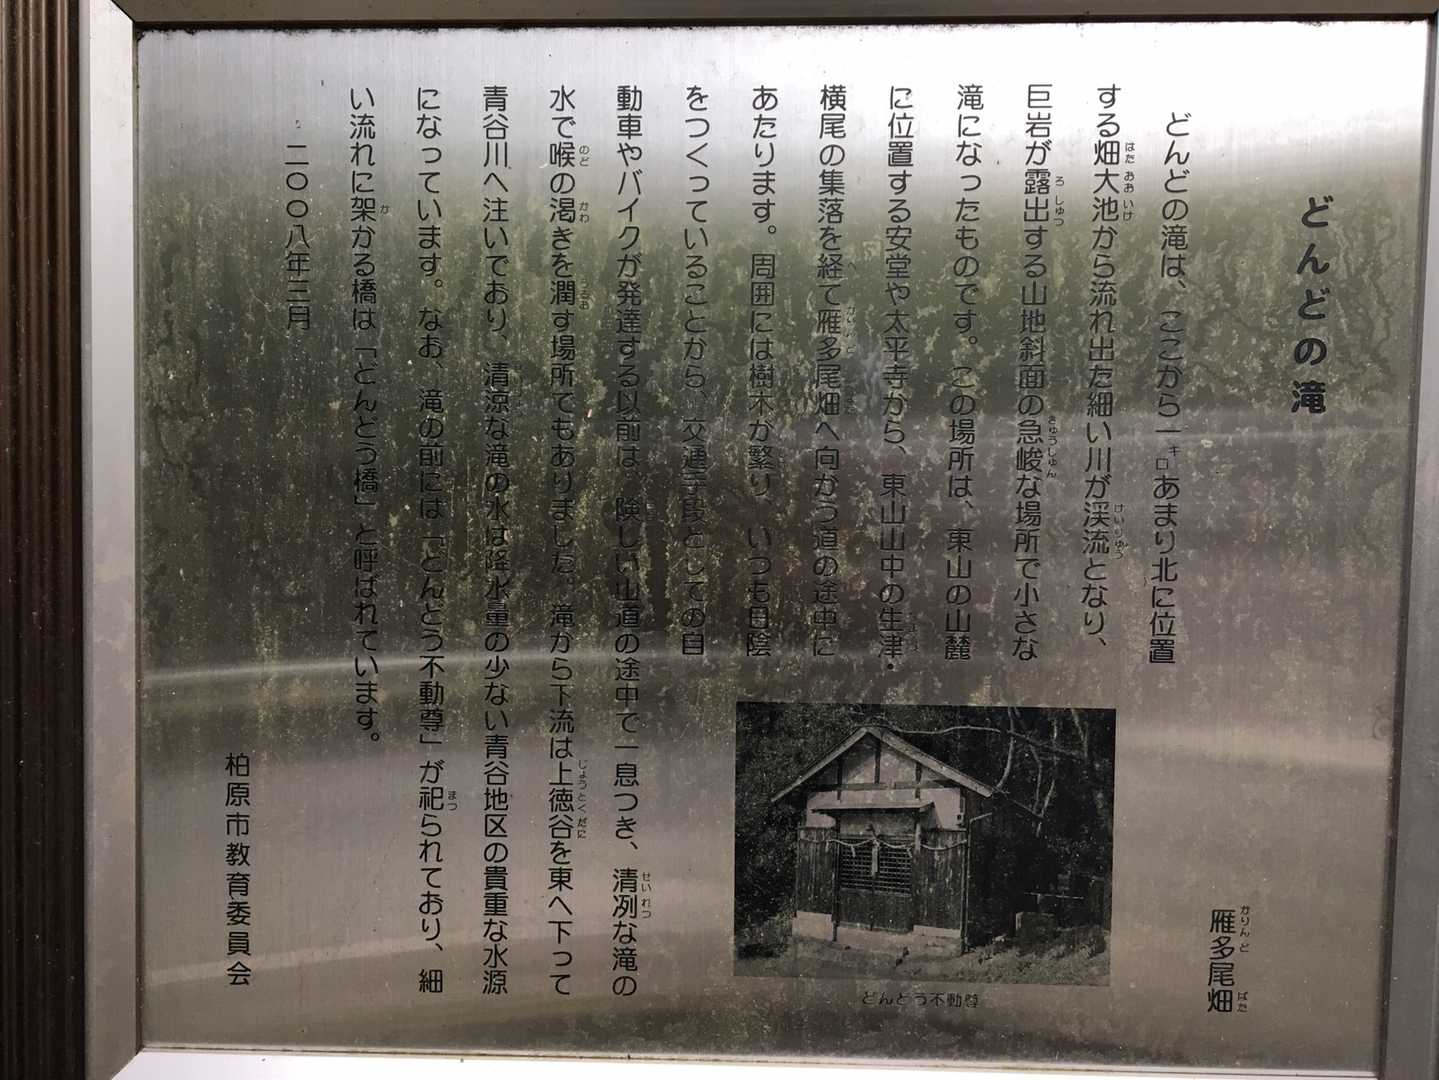 どんどの滝
雁多尾畑
かりんど
ばた
どんどの滝は、ここから一㌔あまり北に位置
する畑大池から流れ出た細い川が渓流となり、
はた おお いけ
けいりゅう
巨岩が露出する山地斜面の急峻な場所で小さな
ろ しゅつ
きゅうしゅん
滝になったものです。この場所は、東山の山麓
に位置する安堂や太平寺から、東山山中の生津・
横尾の集落を経て雁多尾畑へ向かう道の途中に
あたります。周囲には樹木が繁り、いつも日陰
をつくっていることから、交通手段としての自
動車やバイクが発達する以前は、険しい山道の途中で一息つき、清冽な滝の
せい れつ
水で喉の渇きを潤す場所でもありました。滝から下流は上徳谷を東へ下って
のど
かわ
うるお
じょうとくだに
青谷川へ注いでおり、清涼な滝の水は降水量の少ない青谷地区の貴重な水源
になっています。なお、滝の前には「どんどう不動尊」が祀られており、細
まつ
い流れに架かる橋は「どんどう橋」と呼ばれています。
か
二〇〇八年三月
柏原市教育委員会
どんどう不動尊